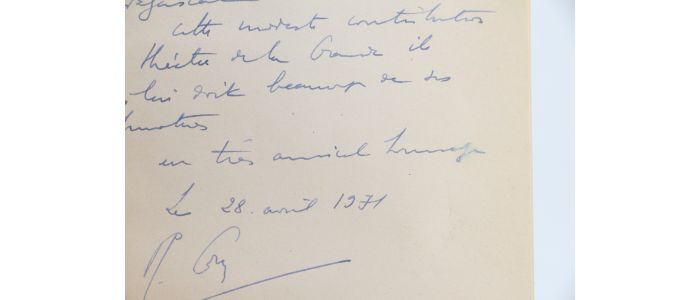 cette modeste contribution
théâtre de la Grande île
lui doit beaucoup de ses
en très amical hommage
Le 28. avril 1971